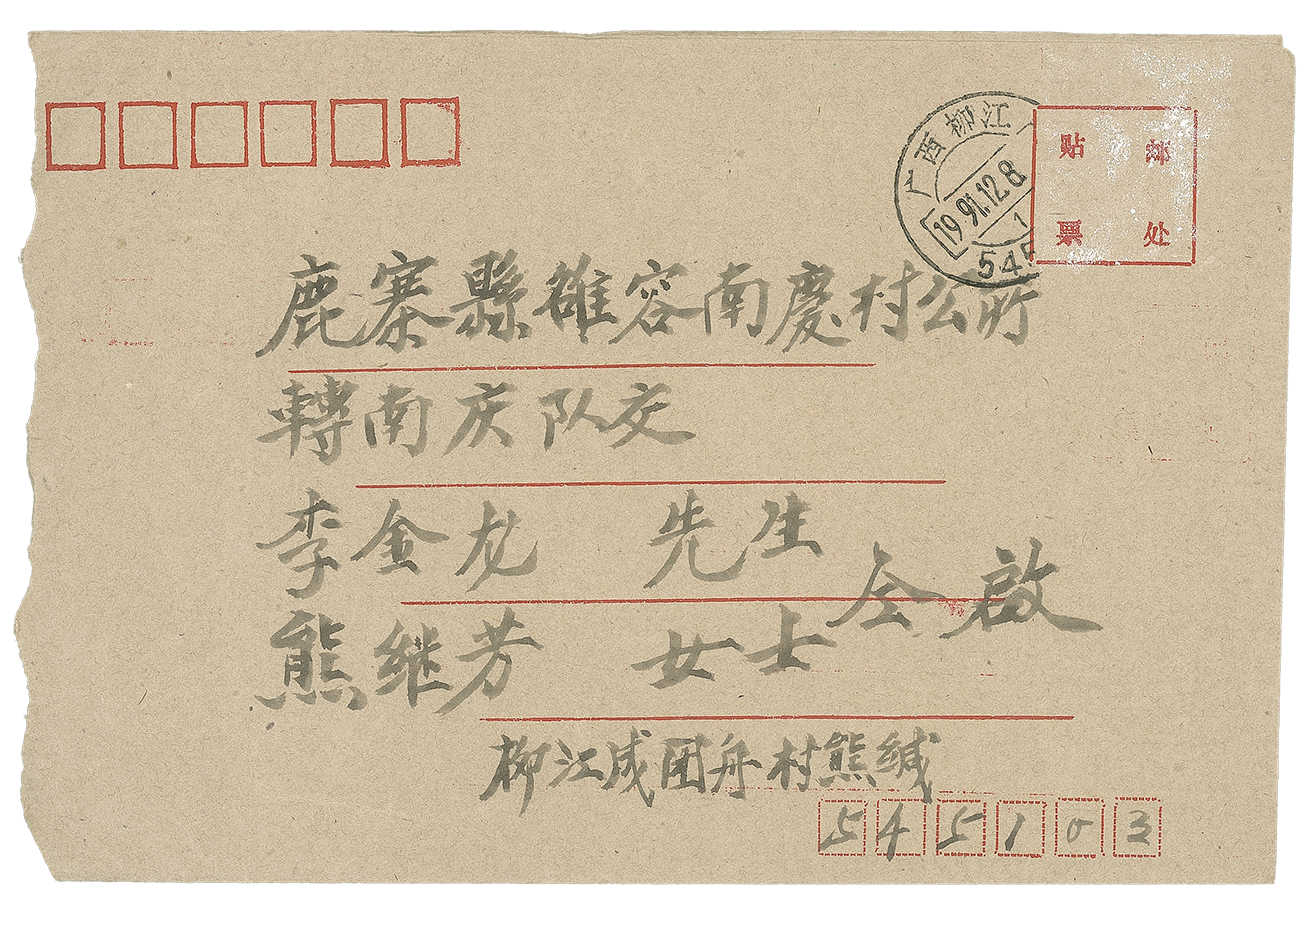 广西柳江
1991.12.8
1
545
贴 邮
票 处
鹿寨縣雒容南慶村公所
轉南庆队交
李金龙 先生
仝啟
熊继芳 女士
柳江成团舟村熊缄
545103